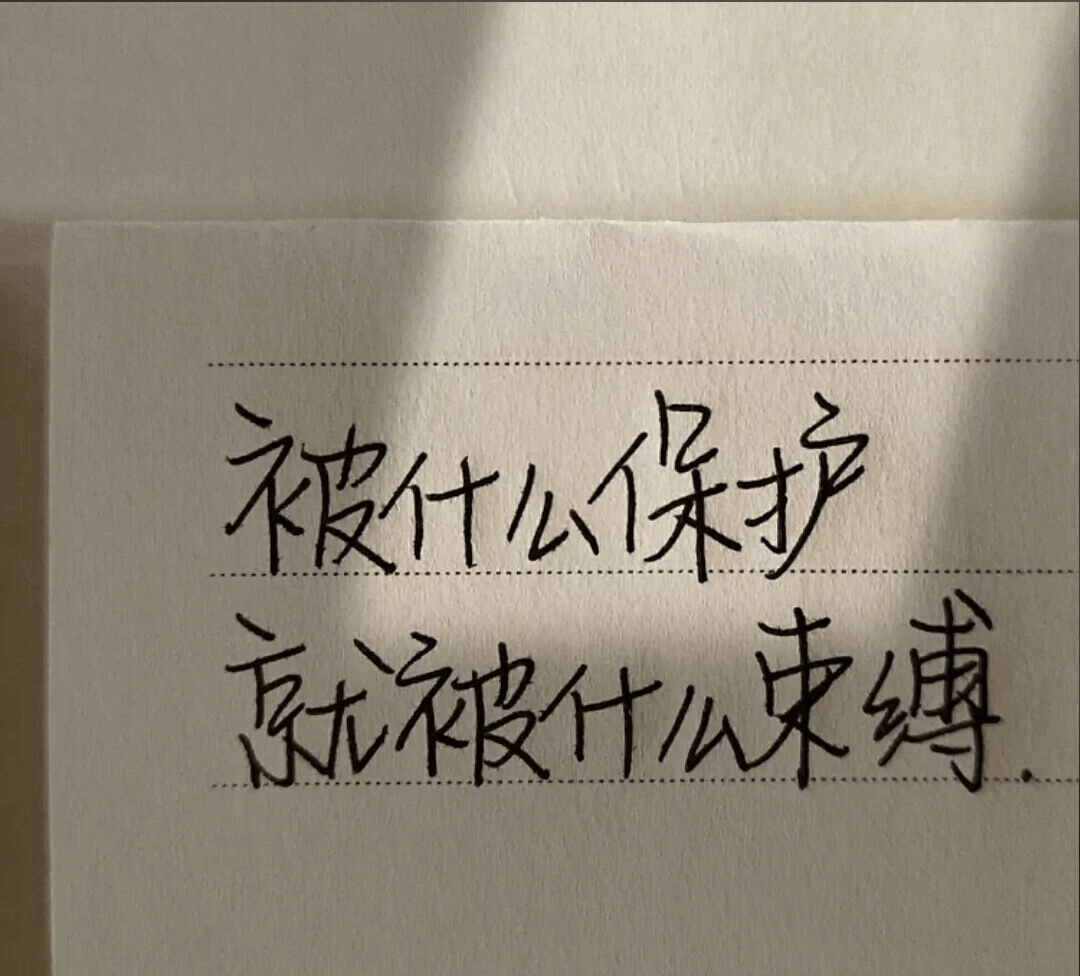 被什么保护
就被什么束缚.